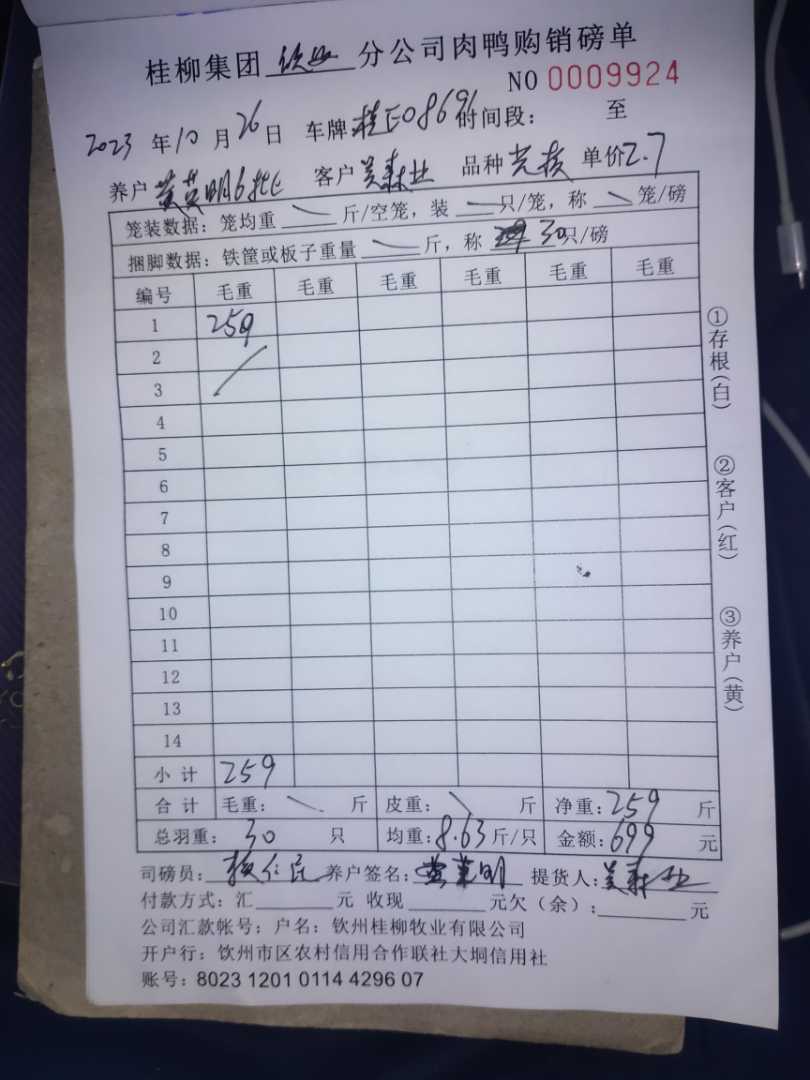 桂柳集团 钦州 分公司肉鸭购销磅单
NO 0009924
2023 年 10 月 26 日 车牌 桂E08696 时间段： 至
养户 黄英明6批 客户 吴森业 品种 单价 2.7
笼装数据：笼均重 斤/空笼，装 只/笼，称 笼/磅
捆脚数据：铁筐或板子重量 斤，称 30只/磅
编号 毛重 毛重 毛重 毛重 毛重 毛重
1 259
2
3
4
5
6
7
8
9
10
11
12
13
14
小计 259
合计 毛重： 斤 皮重： 斤 净重：259 斤
总羽重：30 只 均重：8.63 斤/只 金额：699 元
司磅员： 养户签名：黄英明 提货人：吴森业
付款方式：汇 元 收现 元欠（余）： 元
公司汇款帐号：户名：钦州桂柳牧业有限公司
开户行：钦州市区农村信用合作联社大垌信用社
账号：8023 1201 0114 4296 07
①存根（白）
②客户（红）
③养户（黄）